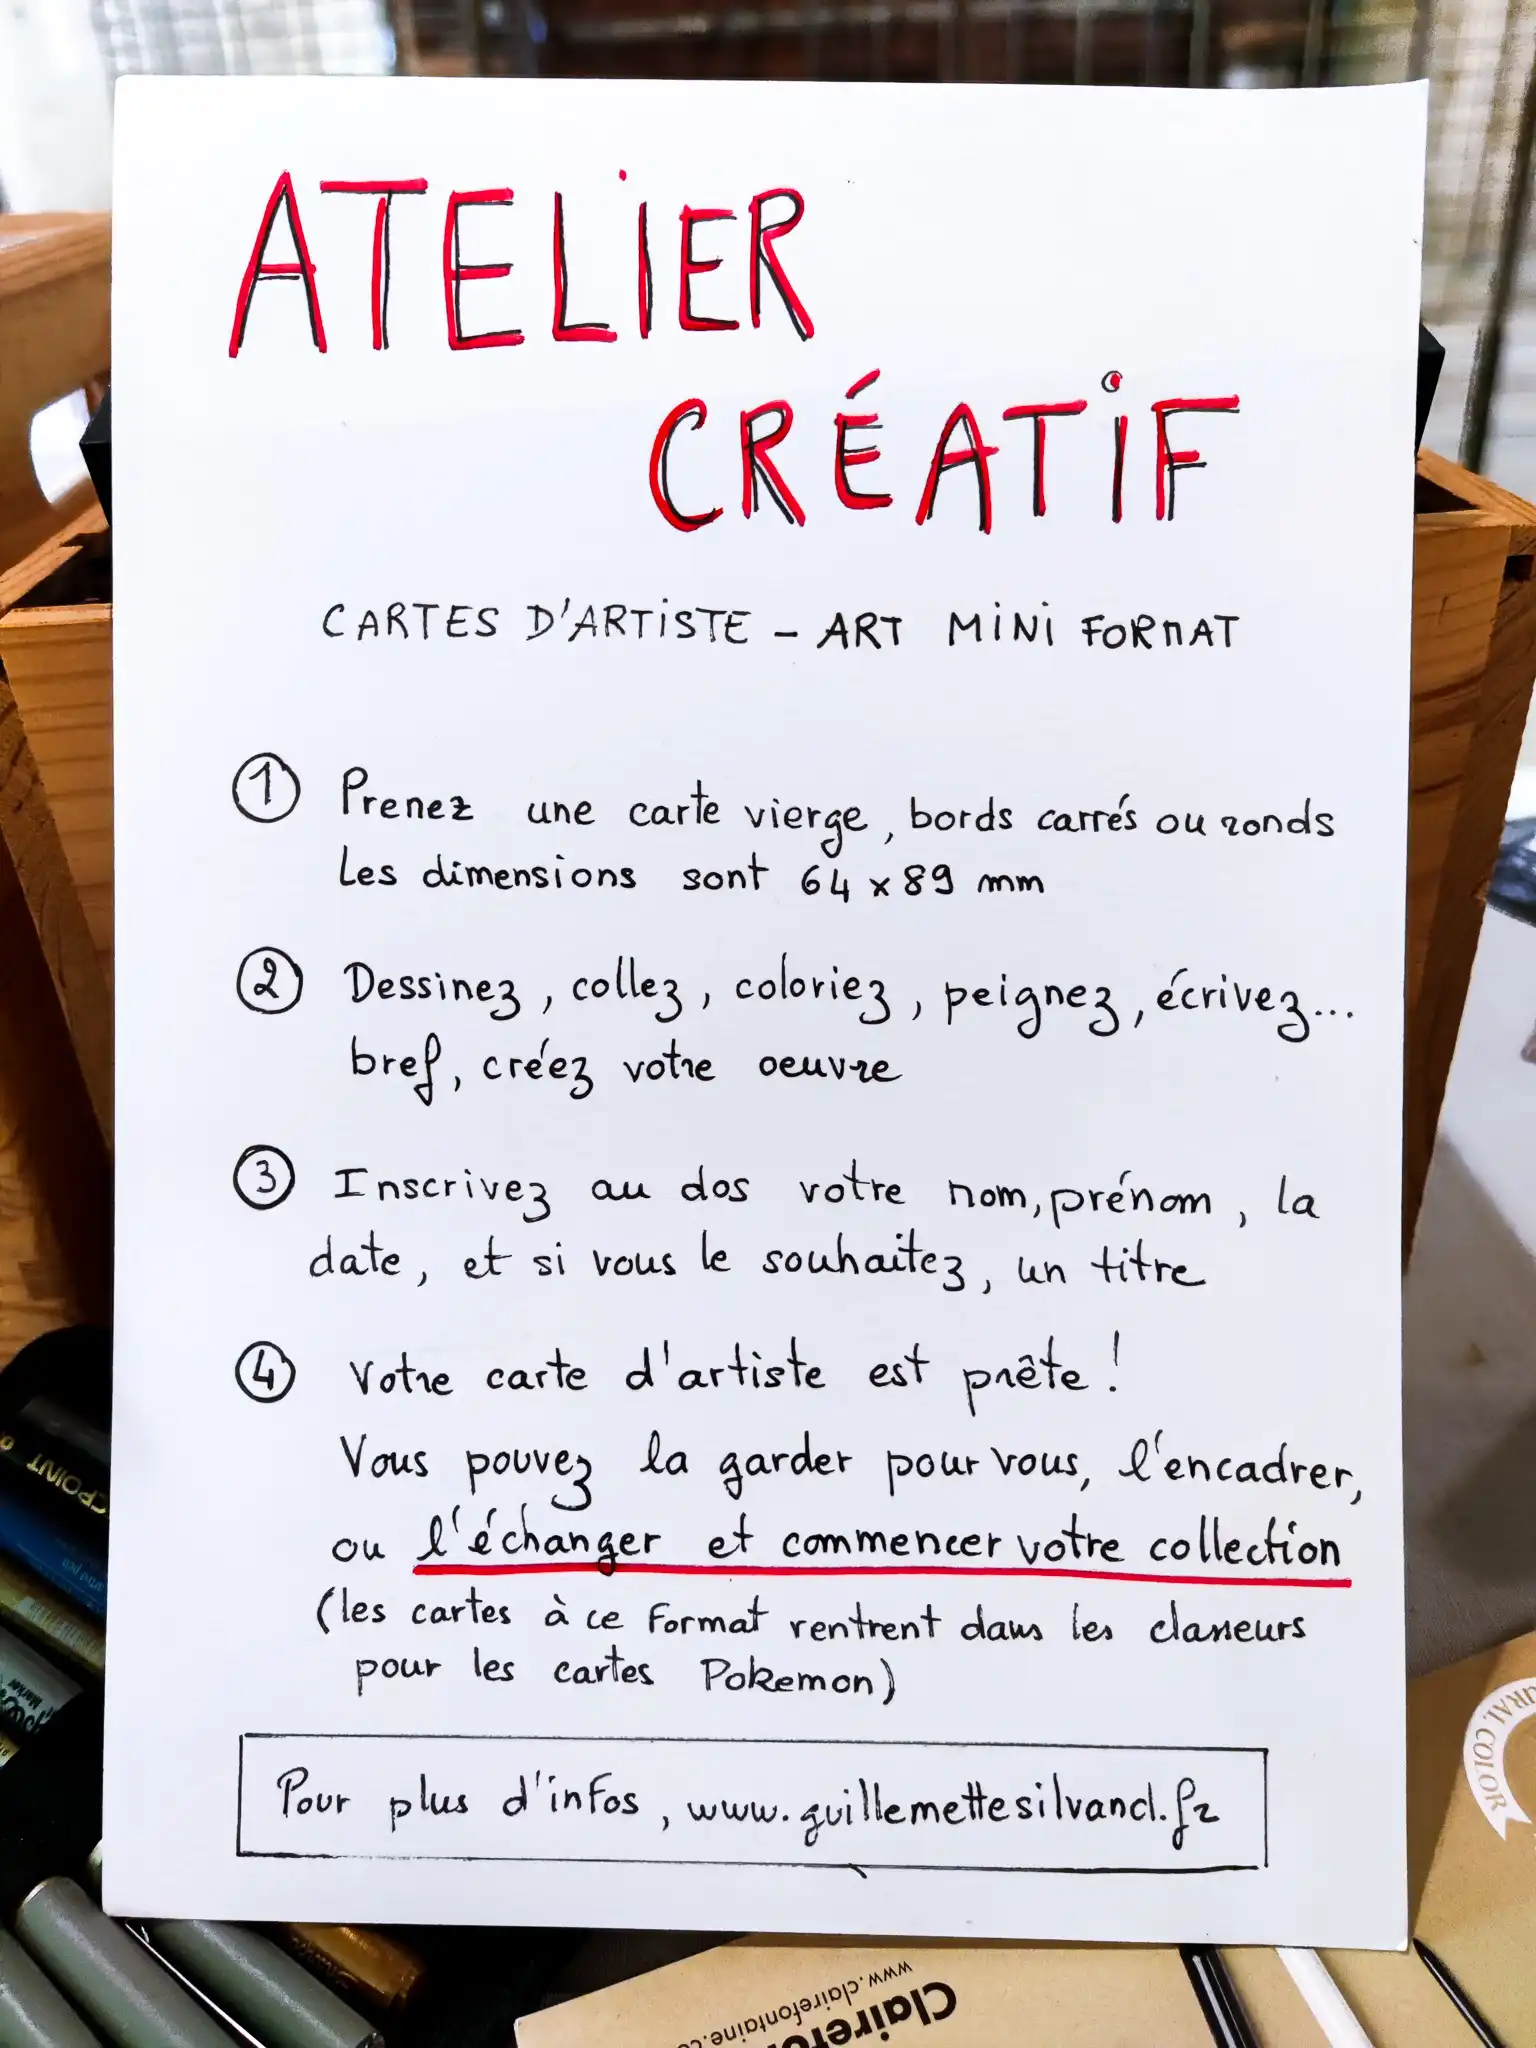 ATELIER
CRÉATIF
CARTES D'ARTISTE - ART MINI FORMAT
1 Prenez une carte vierge, bords carrés ou ronds
Les dimensions sont 64 x 89 mm
2 Dessinez, collez, coloriez, peignez, écrivez...
bref, créez votre oeuvre
3 Inscrivez au dos votre nom, prénom, la
date, et si vous le souhaitez, un titre
4 Votre carte d'artiste est prête !
Vous pouvez la garder pour vous, l'encadrer,
ou l'échanger et commencer votre collection
(les cartes à ce format rentrent dans les classeurs
pour les cartes Pokemon)
Pour plus d'infos, www.guillemettesilvand.fr
COLOR
Marker
www.clairefontaine.co
Clairefo